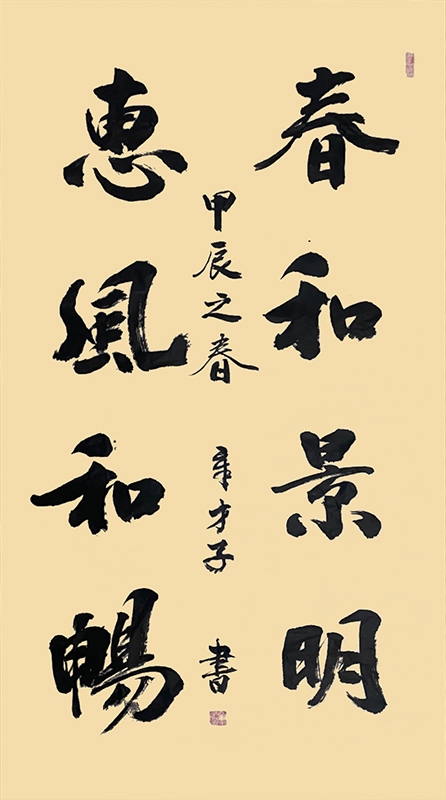 春和景明
惠風和暢
甲辰之春
才子
書